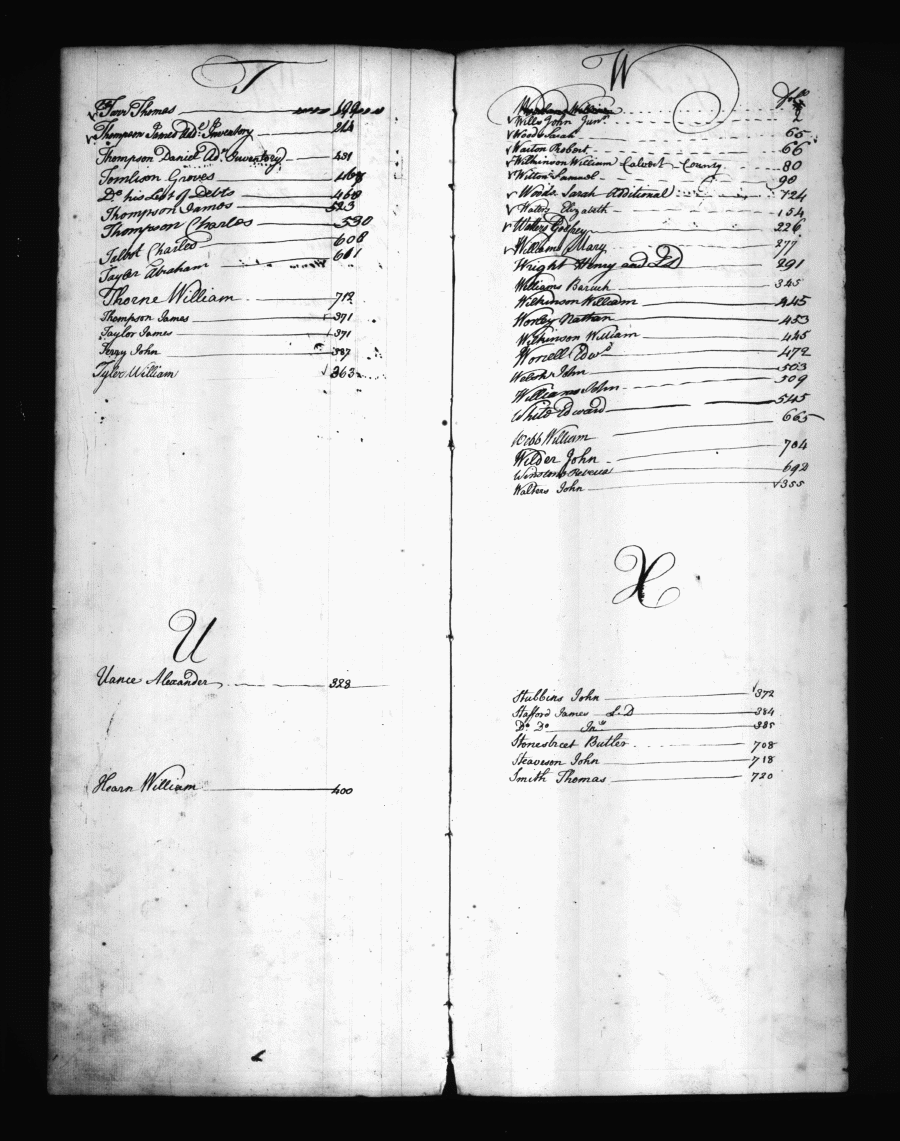 T
Tarr Thomas 199
Thompson James Ad.s Inventory 214
Thompson Daniel Ad.s Inventory 431
Tomlison Groves 468
Do his List of Debts 468
Thompson James 523
Thompson Charles 530
Talbot Charles 608
Tayler Abraham 601
Thorne William 712
Thompson James 371
Taylor James 371
Terry John 387
Tyler William 363
U
Vance Alexander 328
Hearn William 400
W
fol.
Wills John Junr 2
Woods Sarah 65
Waiton Robert 66
Wilkinson William Calvert County 80
Witton Samuel 90
Woods Sarah Additional 724
Waters Elizabeth 154
Waters Godfrey 226
Williams Mary 277
Wright Henry and LD 291
Williams Baruch 345
Wilkinson William 445
Worley Nathan 453
Wilkinson William 445
Worrell Edwd 472
Welsh John 503
Williams John 509
White Edward 545
Webb William 665
Wilder John 704
Rebecca 692
Walters John 355
X
Stubbins John 372
Stafford James L.D 384
Do Do Iny 385
Stonestreet Butler 708
Steaveson John 718
Smith Thomas 720